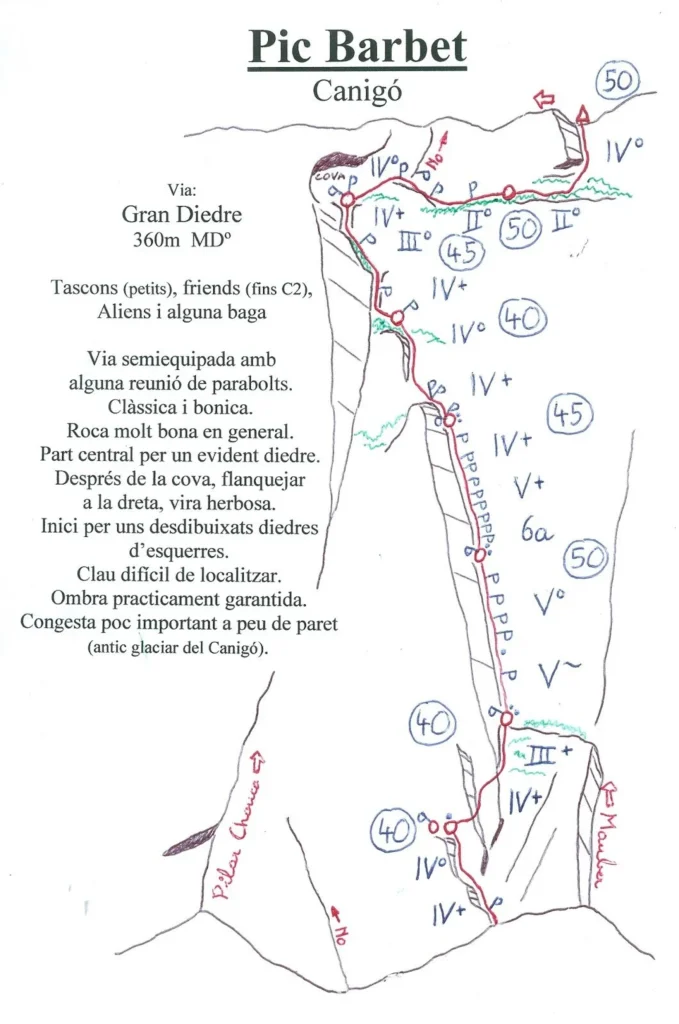 Pic Barbet
Canigó
Via:
Gran Diedre
360m MDº
Tascons (petits), friends (fins C2),
Aliens i alguna baga
Via semiequipada amb
alguna reunió de parabolts.
Clàssica i bonica.
Roca molt bona en general.
Part central per un evident diedre.
Després de la cova, flanquejar
a la dreta, vira herbosa.
Inici per uns desdibuixats diedres
d’esquerres.
Clau difícil de localitzar.
Ombra practicament garantida.
Congesta poc important a peu de paret
(antic glaciar del Canigó).
50
IVº
No
COVA
IVº
IV+
IIº
50
IIº
IIIº
45
IV+
40
IVº
IV+
45
IV+
V+
6a
50
Vº
V~
40
III+
IV+
40
IVº
IV+
Pilar Chouca
No
Mauber